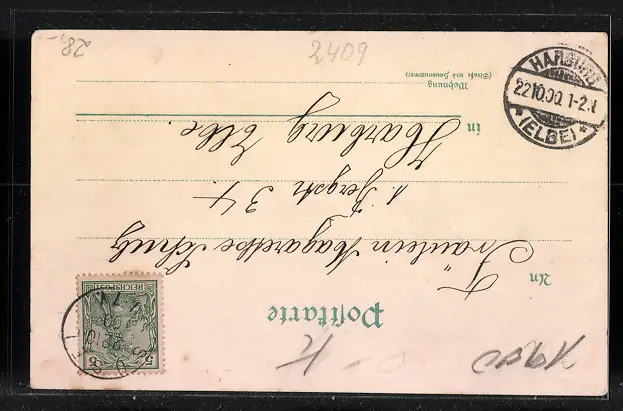 Postkarte
An
Fräulein Magarethe Schulz
1. Bergstr. 34
in Harburg Elbe.
Wohnung
(Straße und Hausnummer)
REICHSPOST
5
HARBURG
22.10.00. 1-2.N
* (ELBE) *
2409
28,-
1900
K